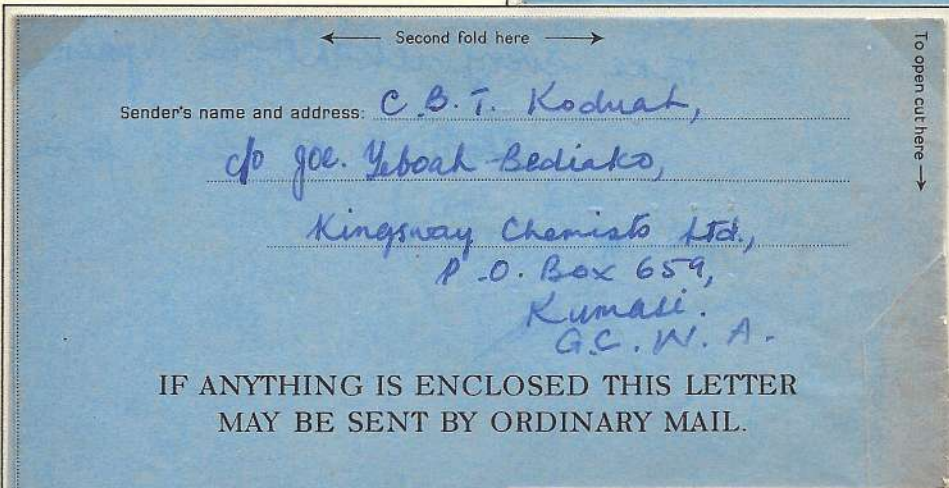 ← Second fold here →
To open cut here →
Sender's name and address: C.B.T. Koduah,
c/o Joe. Yeboah-Bediako,
Kingsway Chemists Ltd.,
P.O. Box 659,
Kumasi.
G.C.W.A.
IF ANYTHING IS ENCLOSED THIS LETTER
MAY BE SENT BY ORDINARY MAIL.